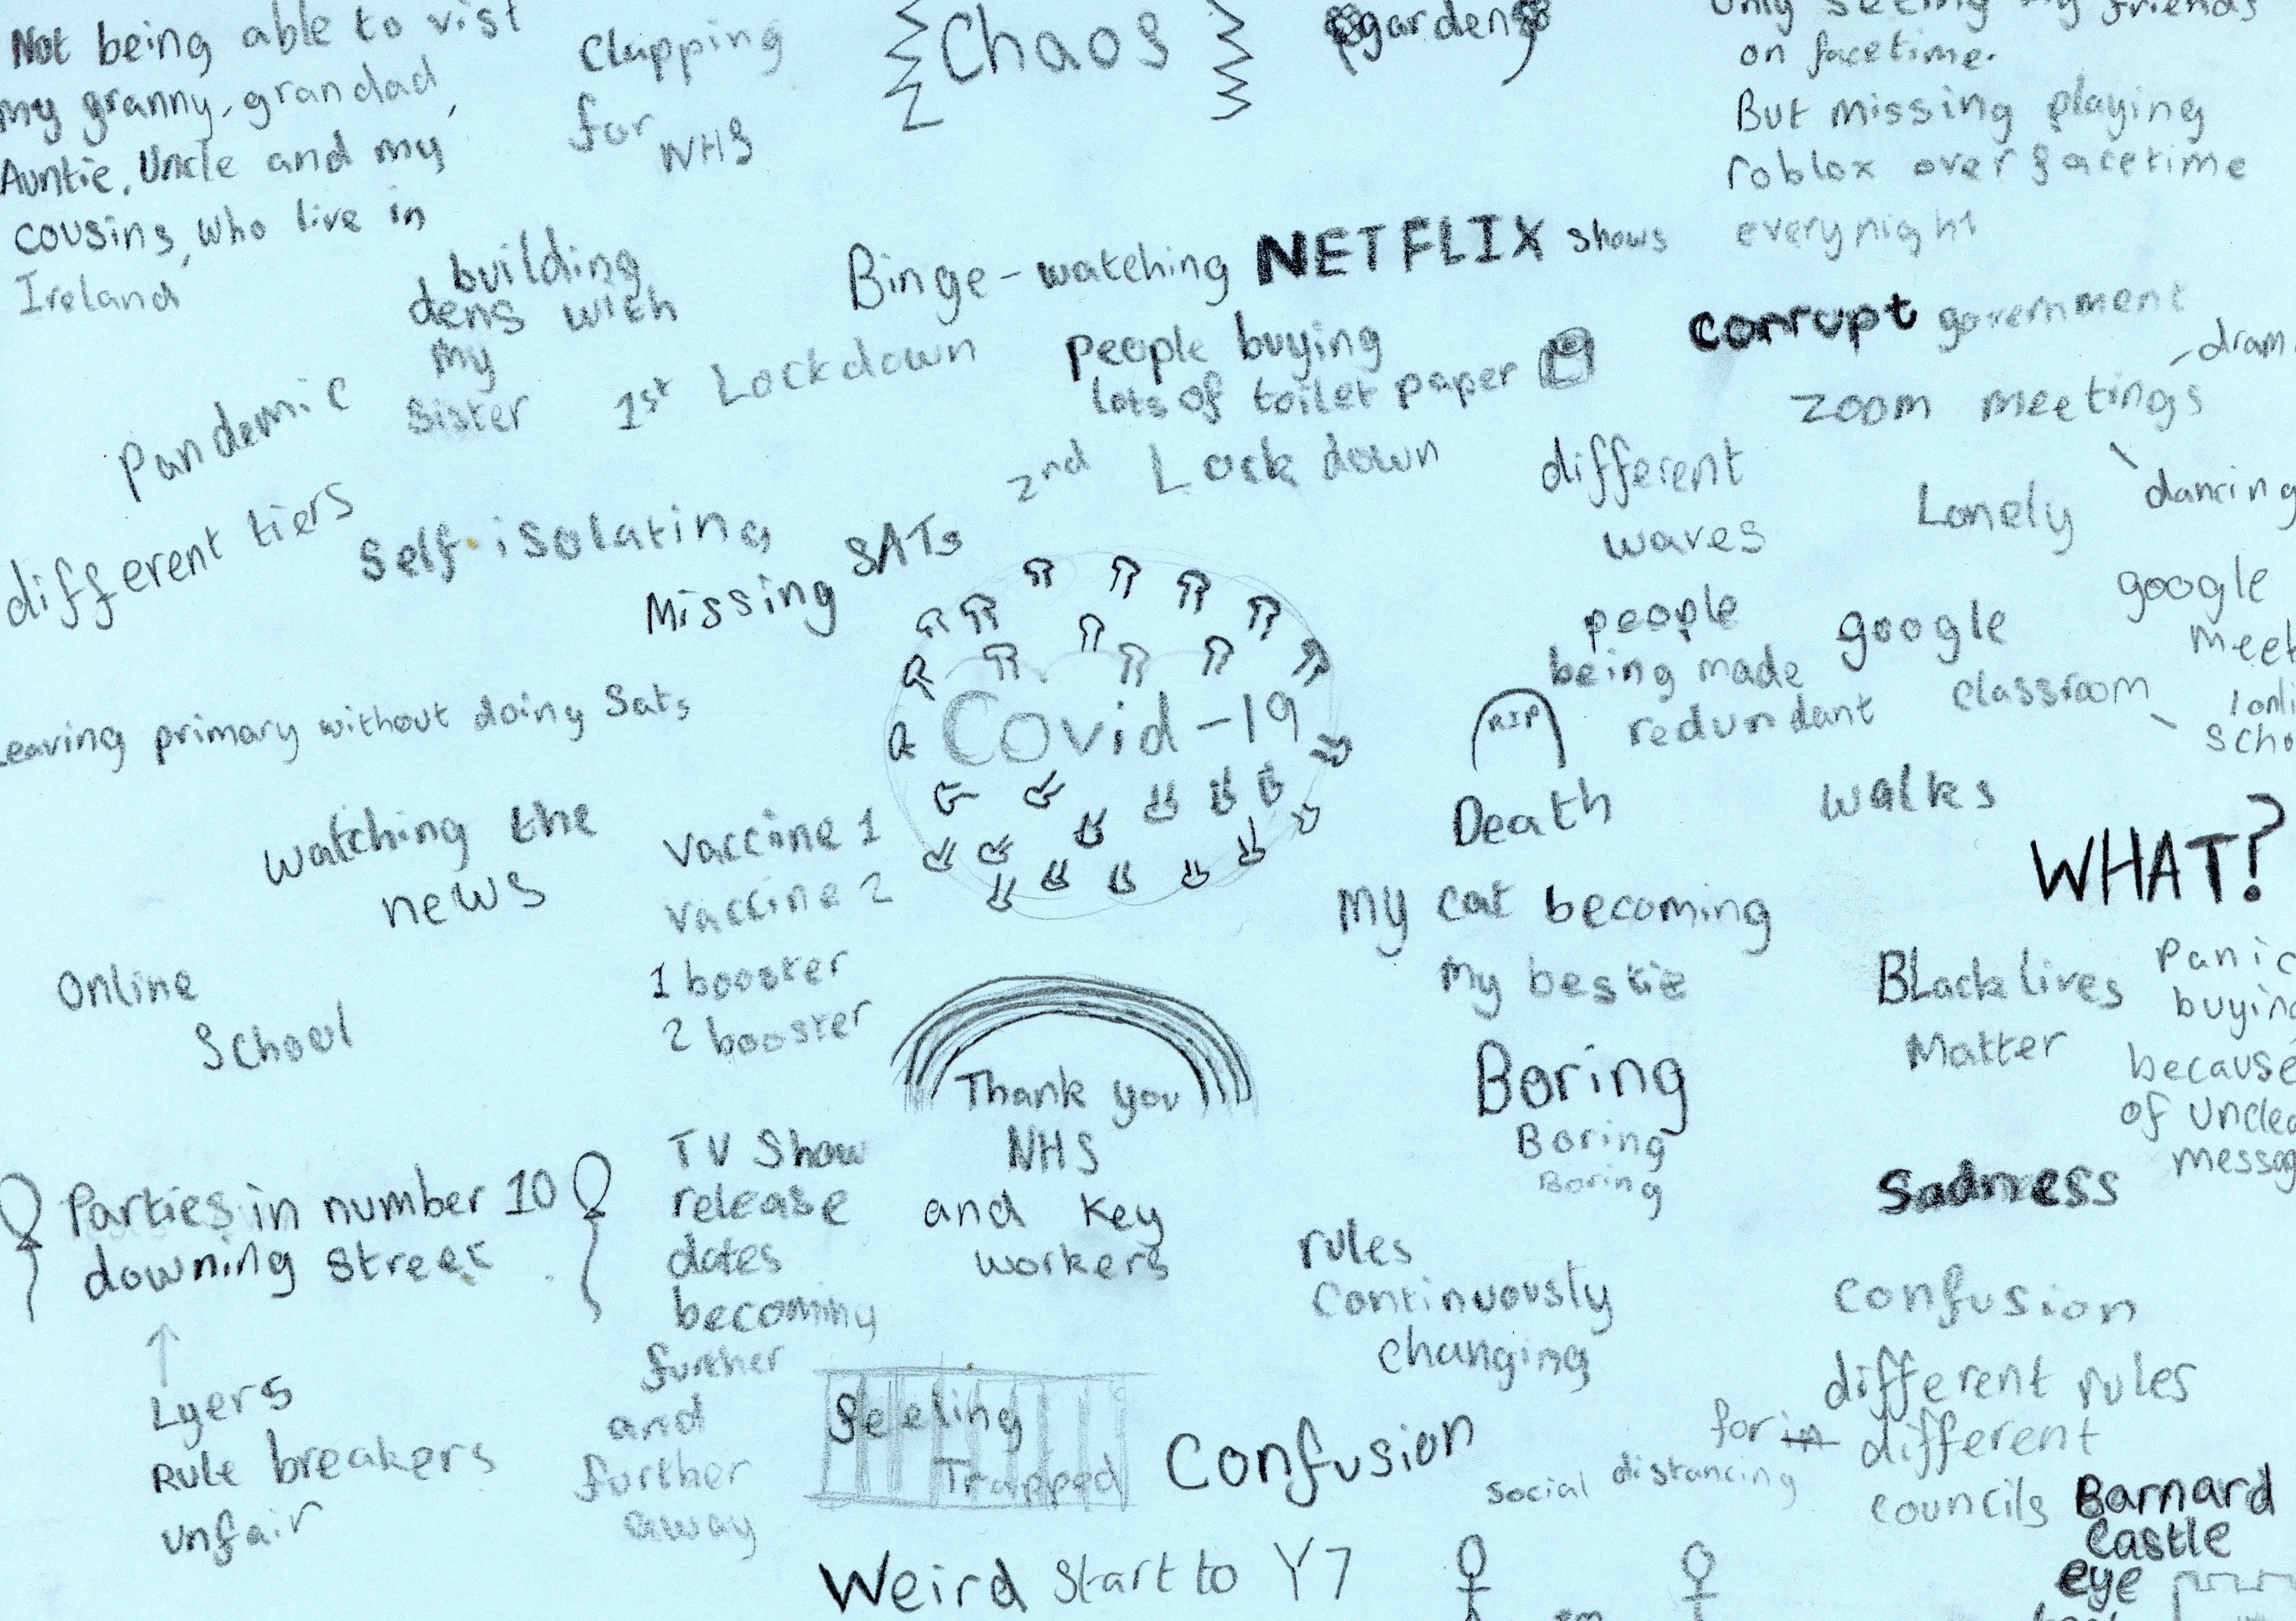 Not being able to vist
my granny, grandad,
Auntie, Uncle and my
cousins, who live in
Ireland
Clapping
for
NHS
Chaos
gardens
only seeing my friends
on facetime.
But missing playing
roblox over facetime
everynight
building
dens with
my
sister
Binge-watching NETFLIX shows
People buying
lots of toilet paper
corrupt government
Pandemic
1st Lockdown
2nd Lockdown
zoom meetings
dancing
different
waves
Lonely
different tiers
Self-isolating
Missing SATs
Covid-19
people
being made
redundant
google
classroom
google
meet
Leaving primary without doing Sats
RIP
Death
walks
WHAT?
watching the
news
Vaccine 1
vaccine 2
1 booster
2 booster
My cat becoming
my bestie
Online
School
Black lives
Matter
Panic
buying
because
of
Thank you
NHS
and key
workers
Boring
Boring
Boring
Sadness
Parties in number 10
downing street
Lyers
Rule breakers
unfair
TV Show
release
dates
becoming
further
and
further
away
rules
continuously
changing
confusion
different rules
for in different
councils
feeling
Trapped
Confusion
social distancing
Barnard
Castle
eye
Weird Start to Y7